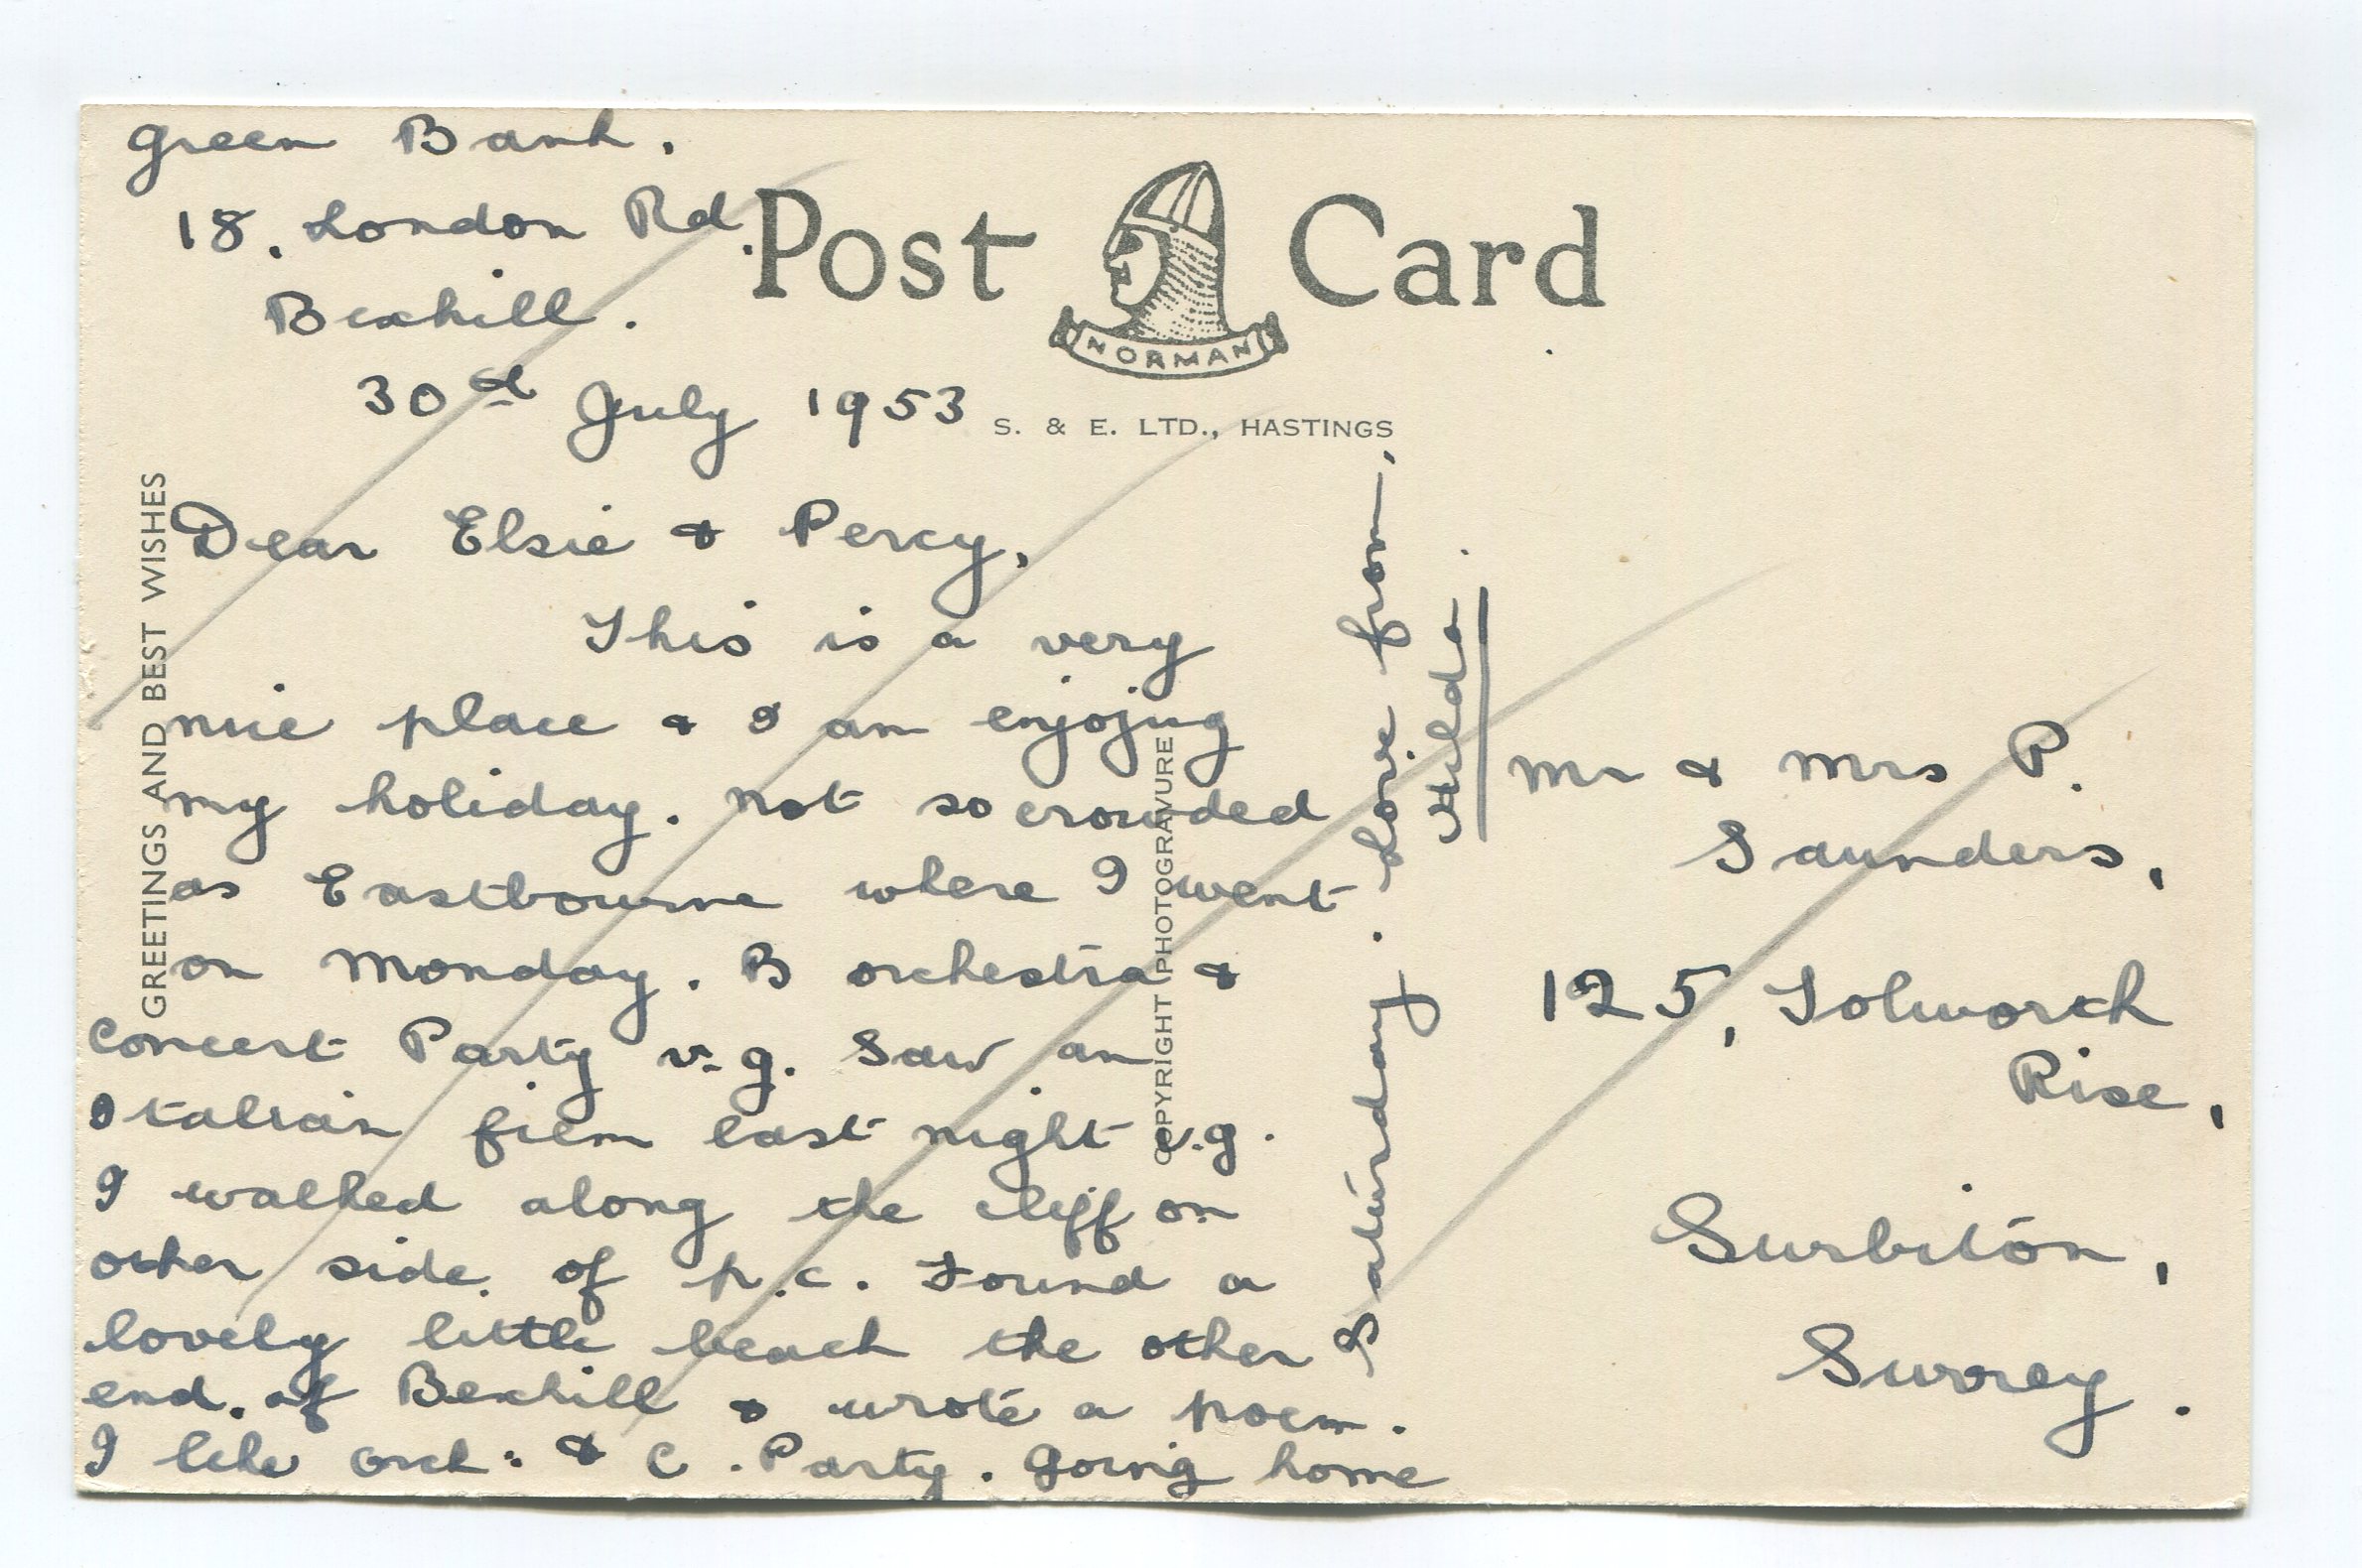 Green Bank.
18, London Rd.
Bexhill.
30th July 1953
Post Card
NORMAN
S. & E. LTD., HASTINGS
GREETINGS AND BEST WISHES
COPYRIGHT PHOTOGRAVURE
Dear Elsie & Percy,
This is a very
nice place & I am enjojng
my holiday. Not so crowded
as Eastbourne where I went
on Monday. B orchestra &
Concert Party v.g. Saw an
Italian film last night v.g.
I walked along the cliff on
other side of p.c. Found a
lovely little beach the other
end of Bexhill & wrote a poem.
I like orch: & C. Party. Going home
Saturday. Love from,
Hilda.
Mr & Mrs P.
Saunders,
125, Tolworth
Rise,
Surbiton,
Surrey.